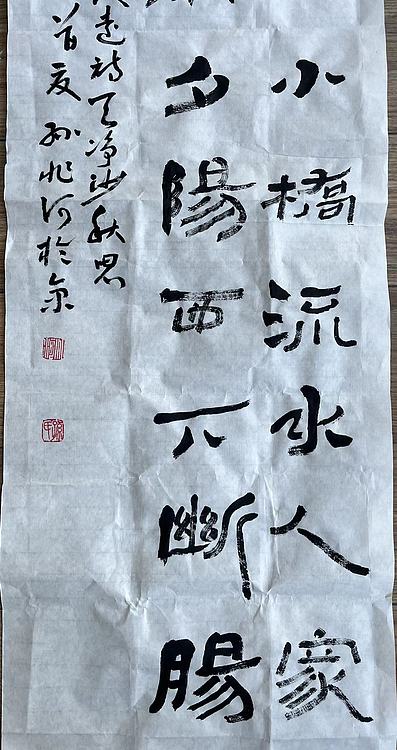 小橋流水人家
夕陽西下斷腸
遠詩天净沙秋思
首夏孙兆河於京